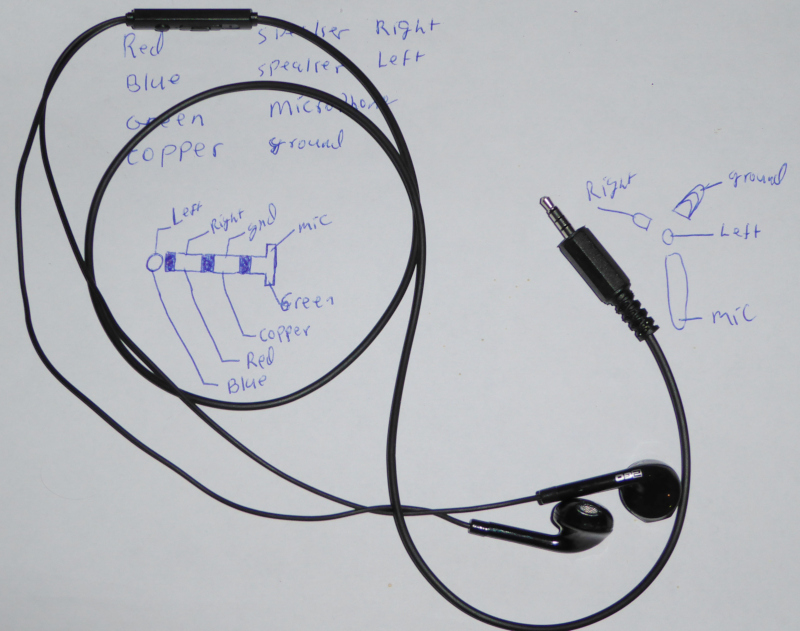 Red speaker Right
Blue speaker Left
Green Microphone
Copper ground
Left
Right
gnd
mic
Green
Copper
Red
Blue
Right
ground
Left
mic